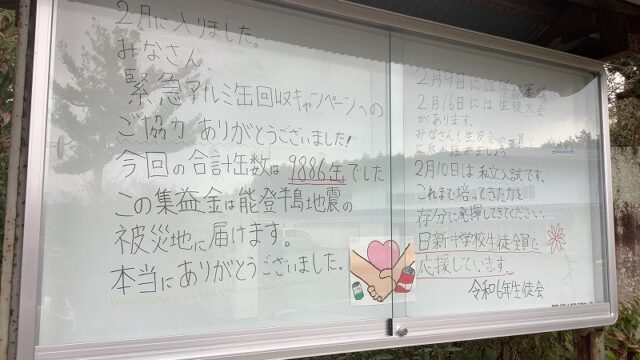 2月に入りました。
みなさん、
緊急アルミ缶回収キャンペーンへの
ご協力 ありがとうございました!
今回の合計缶数は 9886缶でした
この集益金は能登半島地震の
被災地に届けます。
本当にありがとうございました。
2月9日には学
2月16日には生徒大会
があります。
みなさんも生徒会の一員
2月10日は私立入試です。
これまで培ってきた力を
存分に発揮してきてください。
日新中学校生徒全員で
応援しています。
令和6年生徒会